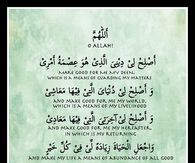 اَللّٰهُمَّ
O ALLAH!
أَصْلِحْ لِيْ دِيْنِيَ الَّذِيْ هُوَ عِصْمَةُ أَمْرِيْ
MAKE GOOD FOR ME MY DEEN,
WHICH IS A MEANS OF GUARDING MY MATTERS
وَ أَصْلِحْ لِيْ دُنْيَايَ الَّتِيْ فِيْهَا مَعَاشِيْ
AND MAKE GOOD FOR ME MY WORLD,
WHICH IS A MEANS OF MY LIVELIHOOD
وَ أَصْلِحْ لِيْ آخِرَتِيَ الَّتِيْ فِيْهَا مَعَادِيْ
AND MAKE GOOD FOR ME MY HEREAFTER,
IN WHICH IS MY RETURNING
وَاجْعَلِ الْحَيَاةَ زِيَادَةً لِيْ فِيْ كُلِّ خَيْرٍ
AND MAKE MY LIFE A MEANS OF ABUNDANCE OF ALL GOOD